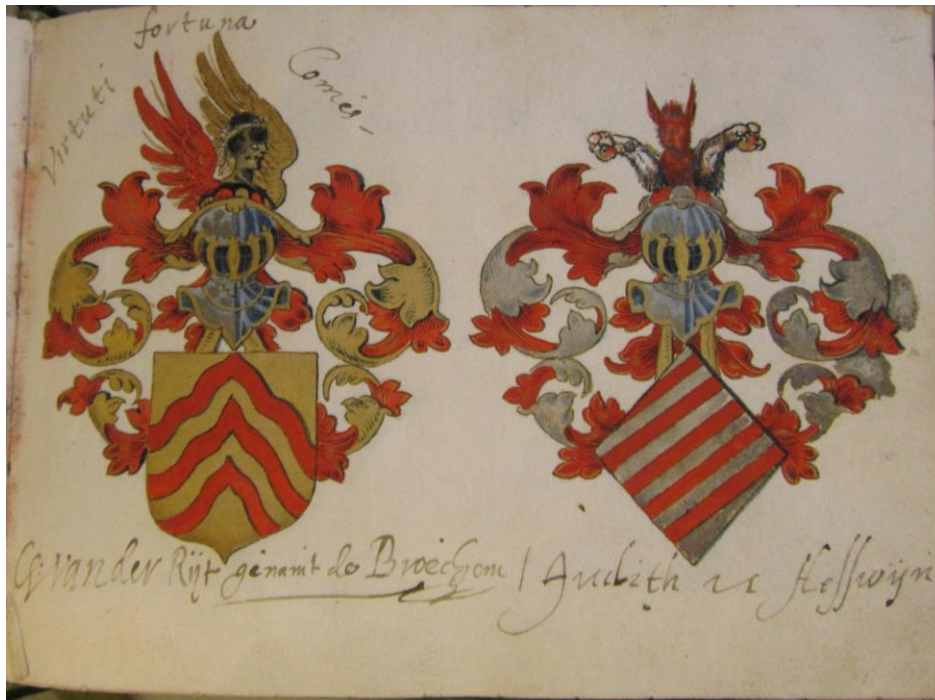 Virtuti fortuna Comes-
van der Rijt genaint de Broechem / Judith